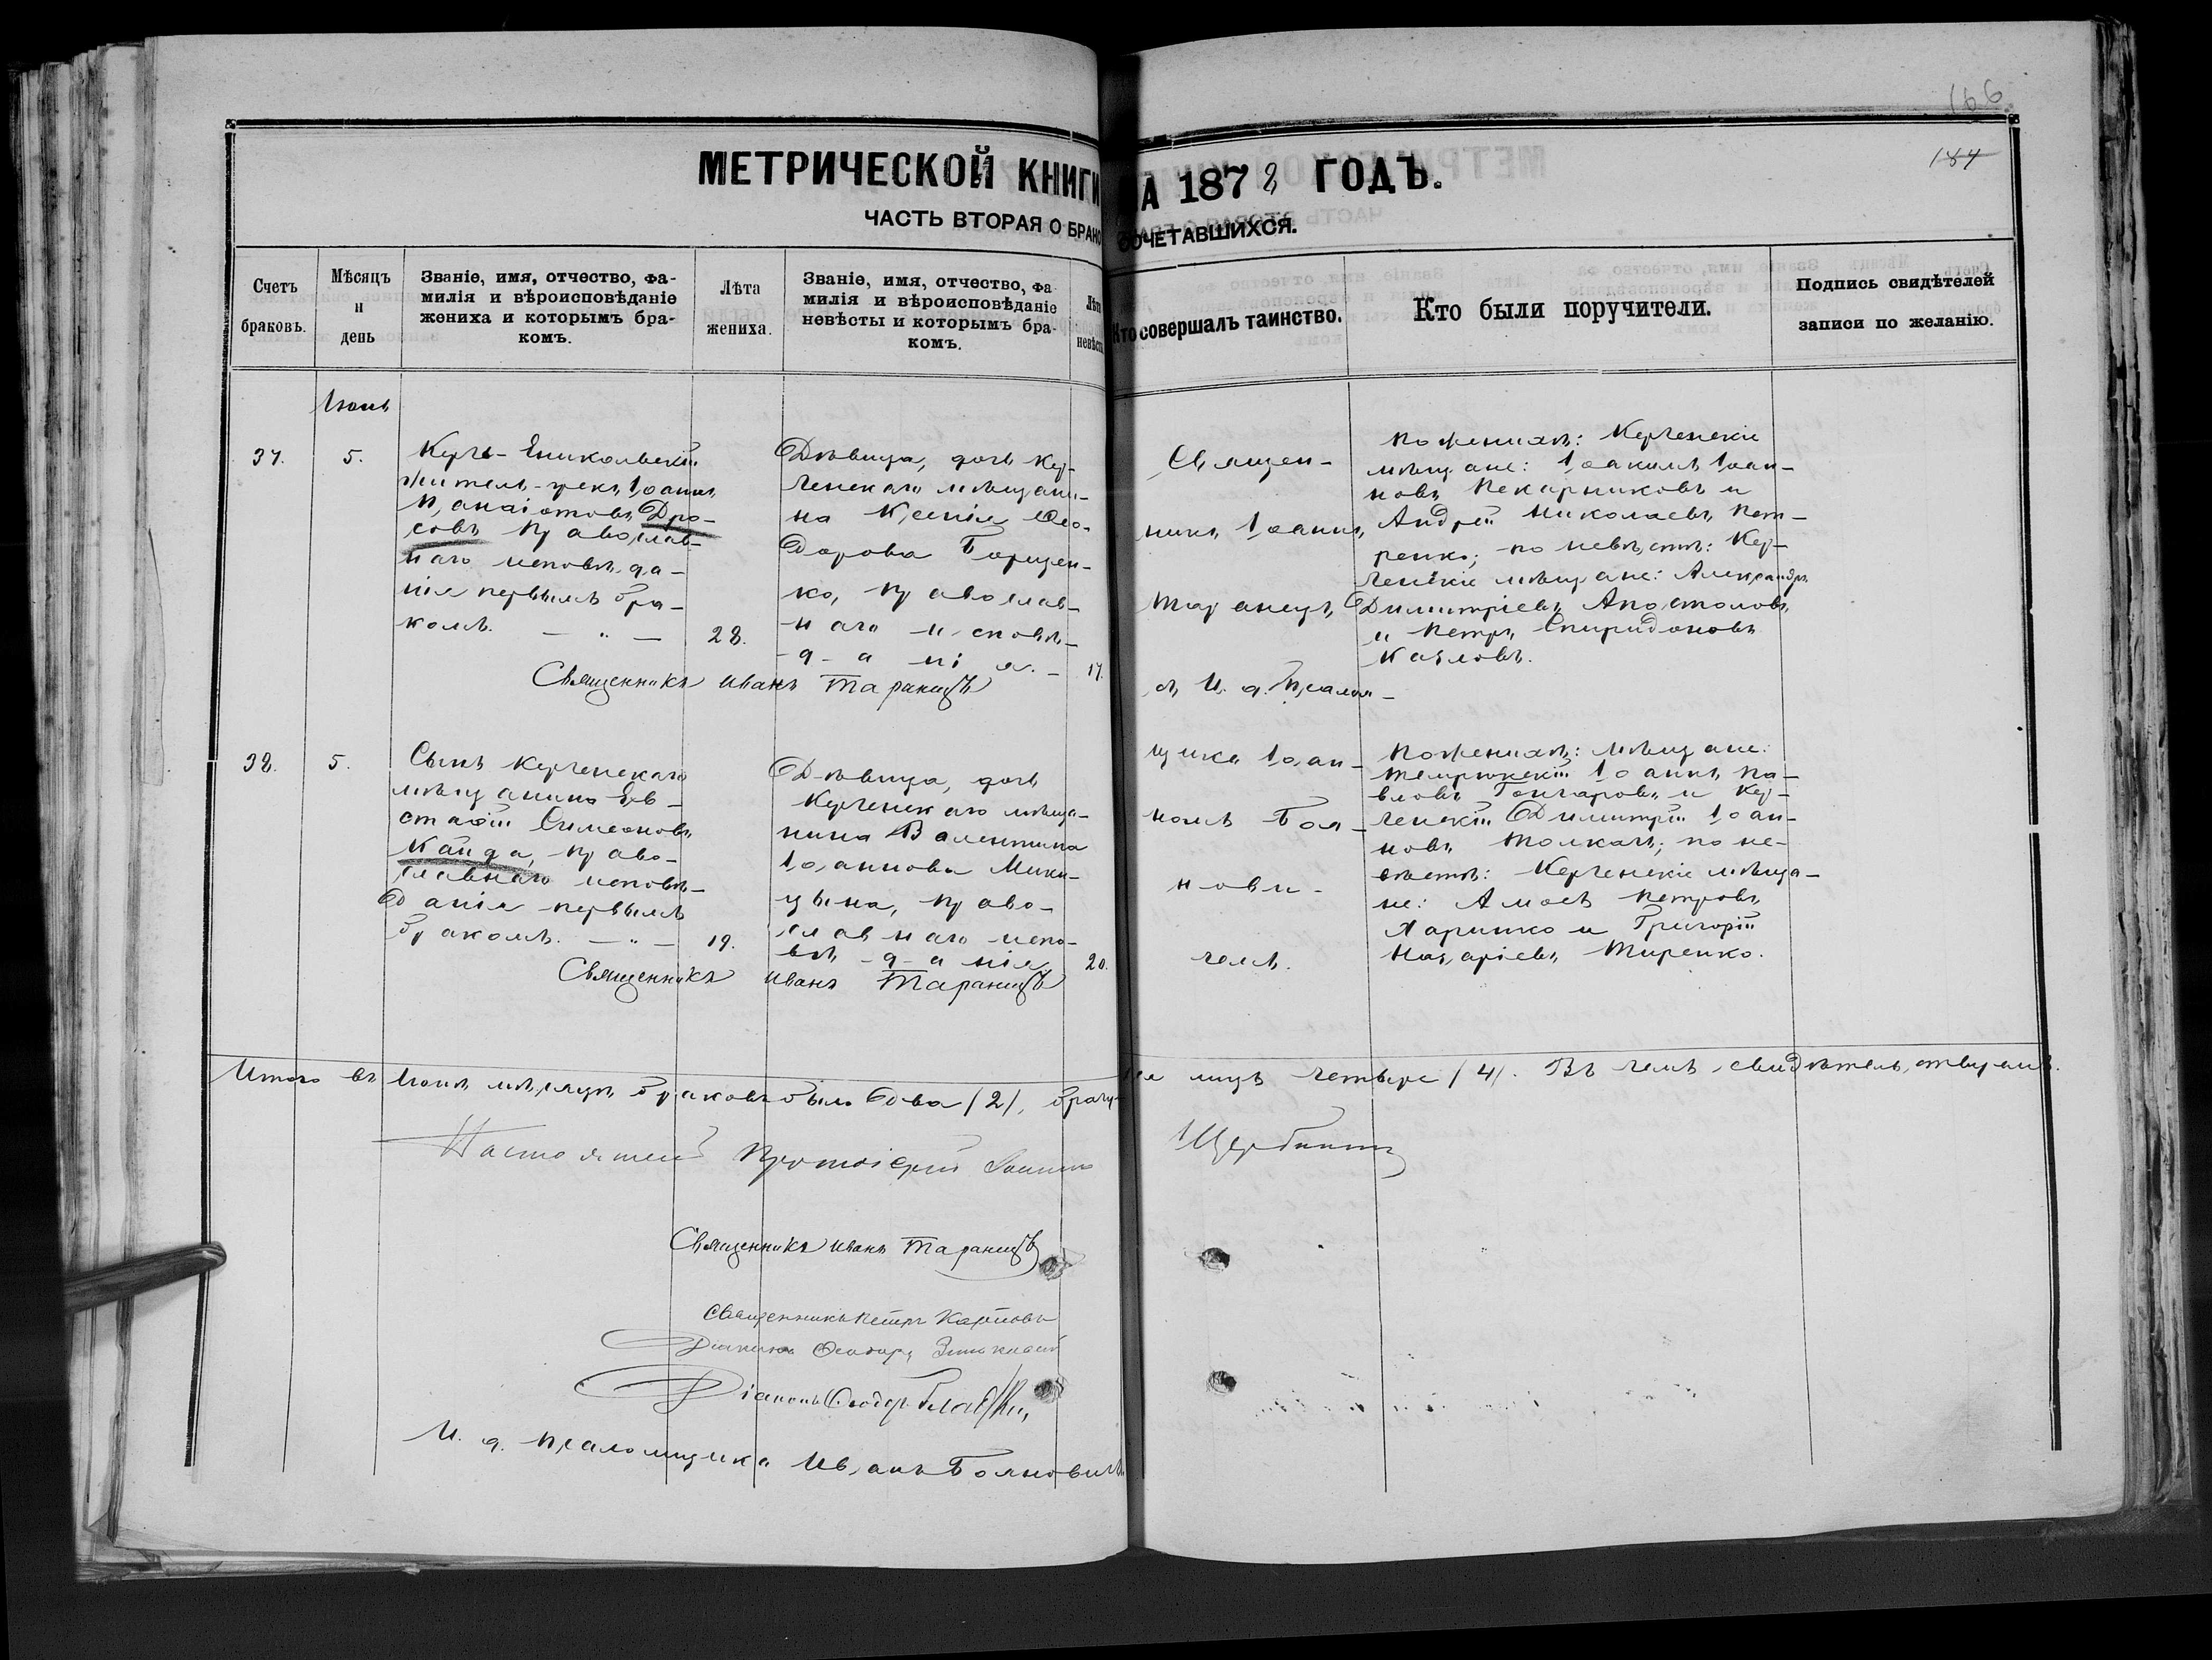 166
184
МЕТРИЧЕСКОЙ КНИГИ
А 1878 ГОДЪ.
ЧАСТЬ ВТОРАЯ О БРАКО
СОЧЕТАВШИХСЯ.
Счетъ
браковъ.
Мѣсяцъ
и
день
Званіе, имя, отчество, фа-
милія и вѣроисповѣданіе
жениха и которымъ бра-
комъ.
Лѣта
жениха.
Званіе, имя, отчество, фа
милія и вѣроисповѣданіе
невѣсты и которымъ бра-
комъ.
Лѣта
невѣсты
Кто совершалъ таинство.
Кто были поручители.
Подпись свидѣтелей
записи по желанію.
Іюнь
37.
5.
Керчь-Еникольскій
житель-грекъ Іоаннъ
Панаіотовъ Дро-
совъ православ-
наго исповѣда-
нія первымъ бра-
комъ. — „ —
28.
Дѣвица, дочь Кер-
ченскаго мѣщани-
на Ксенія Ѳео-
дорова Борщен-
ко, православ-
наго исповѣ-
-д-а ні я. -
17.
Священникъ Иванъ Таранецъ
Священ-
никъ Іоаннъ
Таранецъ
съ И. д. Псалом-
щика Іоан-
номъ Боя-
нови-
чемъ.
По женихѣ: Керченскіе
мѣщане: Іоакимъ Іоан-
новъ Пекарниковъ и
Андрей Николаевъ Пет-
ренко; по невѣстѣ: Кер-
ченскіе мѣщане: Александръ
Димитріевъ Апостоловъ
и Петръ Спиридоновъ
Козловъ.
38.
5.
Сынъ Керченскаго
мѣщанина Ев-
стафій Симеоновъ
Кайда, право-
славнаго исповѣ-
данія первымъ
бракомъ. — „ —
19.
Дѣвица, дочь
Керченскаго мѣща-
нина Валентина
Іоаннова Мики-
цына, право-
славнаго испо-
вѣ-д-а нія
20.
Священникъ Иванъ Таранецъ
По женихѣ: мѣщане:
Темрюкскій Іоаннъ Па-
вловъ Гончаровъ и Кер-
ченскій Димитрій Іоан-
новъ Толкачъ; по не-
вѣстѣ: Керченскіе мѣща-
не: Амосъ Петровъ
Ларинко и Григорій
Назаріевъ Тиренко.
Итого въ Іюнѣ мѣсяцѣ браковъ было два /2/, брачу-
ся лицъ четыре /4/. Въ чемъ свидѣтельствуемъ.
Настоятель Протоіерей Іоаннъ
Щербина
Священникъ Иванъ Таранецъ
Священникъ Петръ Карповъ
Діаконъ Ѳеодоръ Зеньковскій
Діаконъ Ѳеодоръ
И. д. Псаломщика Иванъ Бояновичъ.